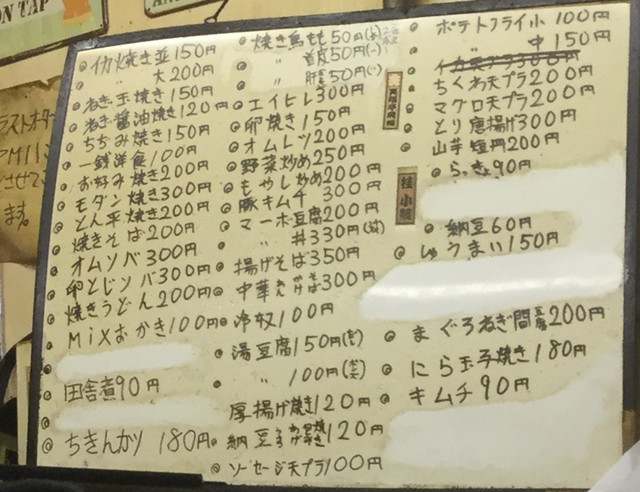 N TAP
ラストオーダー
PM11
とさせて
ます。
イカ焼き並150円
〃 大200円
ねぎ玉焼き150円
ねぎ醤油焼き120円
ちぢみ焼き150円
一銭洋食100円
お好み焼き200円
モダン焼き300円
とん平焼き200円
焼きそば200円
オムソバ300円
卵とじソバ300円
焼きうどん200円
MIXおかき100円
田舎煮90円
ちきんカツ180円
焼き鳥もも50円
〃 首皮50円(〃)
〃 肝50円(〃)
エイヒレ300円
卵焼き150円
オムレツ200円
野菜炒め250円
もやし炒め200円
豚キムチ300円
マーボ豆腐200円
〃 丼330円
揚げそば350円
中華 300円
冷奴100円
湯豆腐150円
〃 100円
厚揚げ焼き120円
納豆 120円
ソーセージ天プラ100円
ポテトフライ小100円
〃 中150円
イカ天プラ300円
ちくわ天プラ200円
マグロ天プラ200円
とり唐揚げ300円
山芋短冊200円
らっきょ90円
桂小龍
納豆60円
しゅうまい150円
まぐろねぎ間 200円
にら玉子焼き180円
キムチ90円